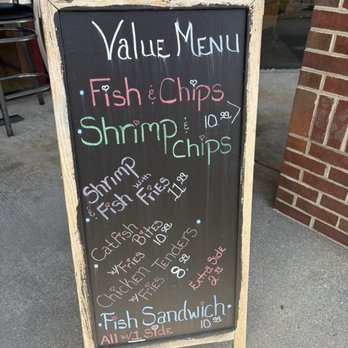 Value Menu
Fish & Chips
Shrimp & Chips
10.99
Shrimp
& Fish with Fries
11.99
Catfish Bites
w/Fries 10.99
Chicken Tenders
w/Fries 8.99
Extra Side
2.99
Fish Sandwich
All w/1 Side
10.99